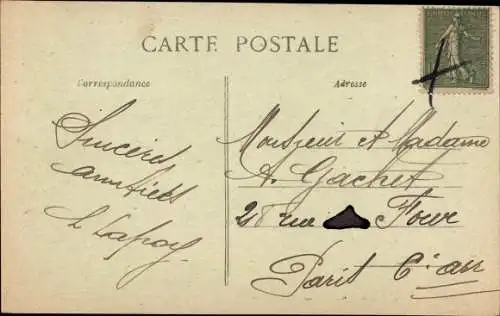 CARTE POSTALE
Correspondance
Adresse
Sincères
amitiés
Monsieur et Madame
A. Gachet
28 rue Four
Paris 6e arr